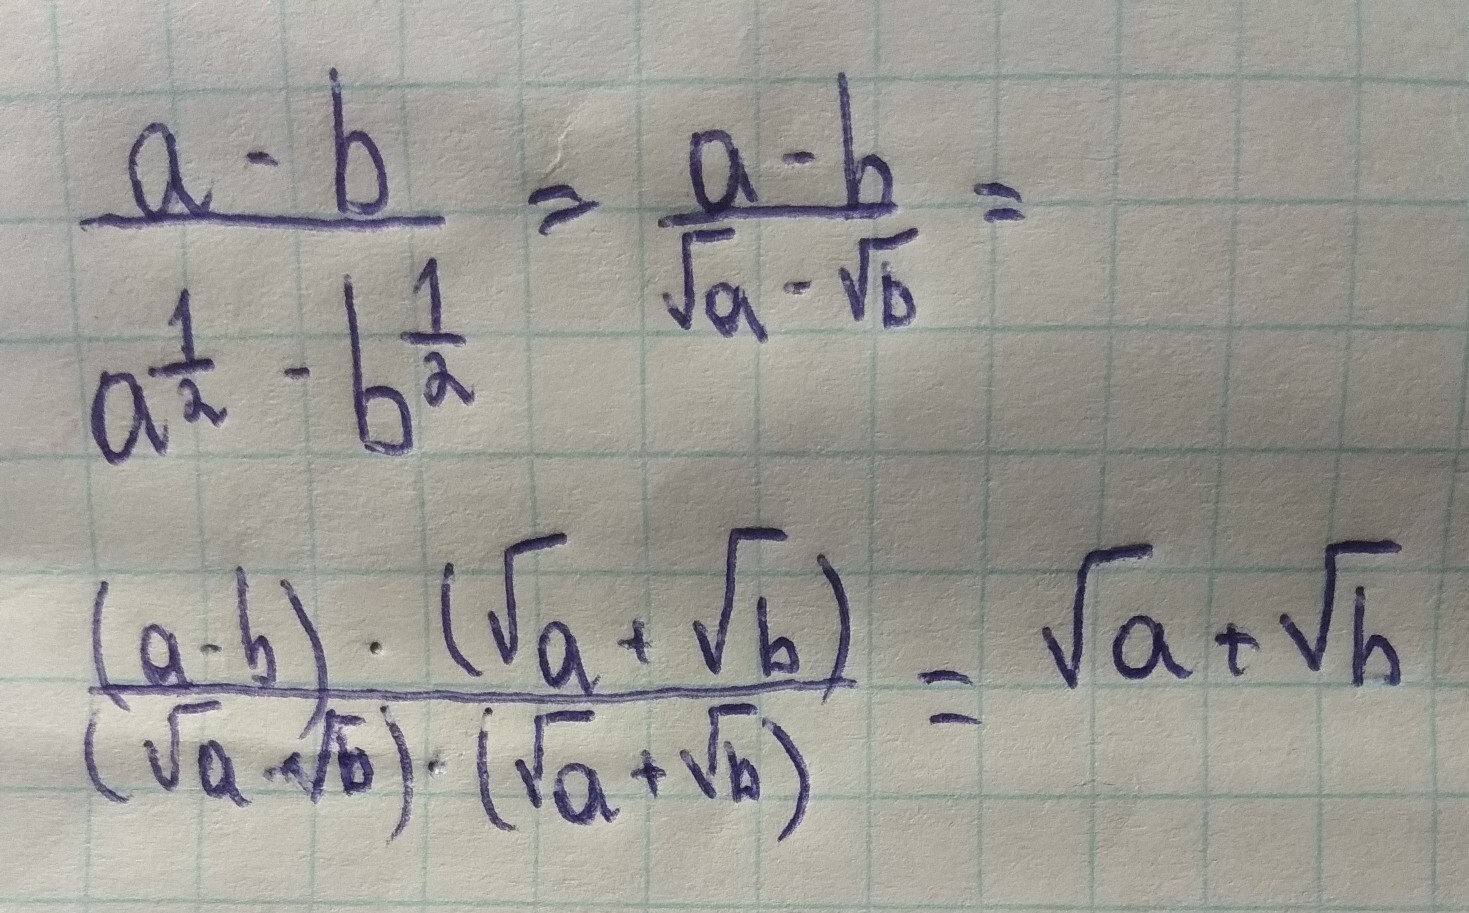 \frac{a-b}{a^{\frac{1}{2}}-b^{\frac{1}{2}}} = \frac{a-b}{\sqrt{a}-\sqrt{b}} =
\frac{(a-b)\cdot(\sqrt{a}+\sqrt{b})}{(\sqrt{a}-\sqrt{b})\cdot(\sqrt{a}+\sqrt{b})} = \sqrt{a}+\sqrt{b}